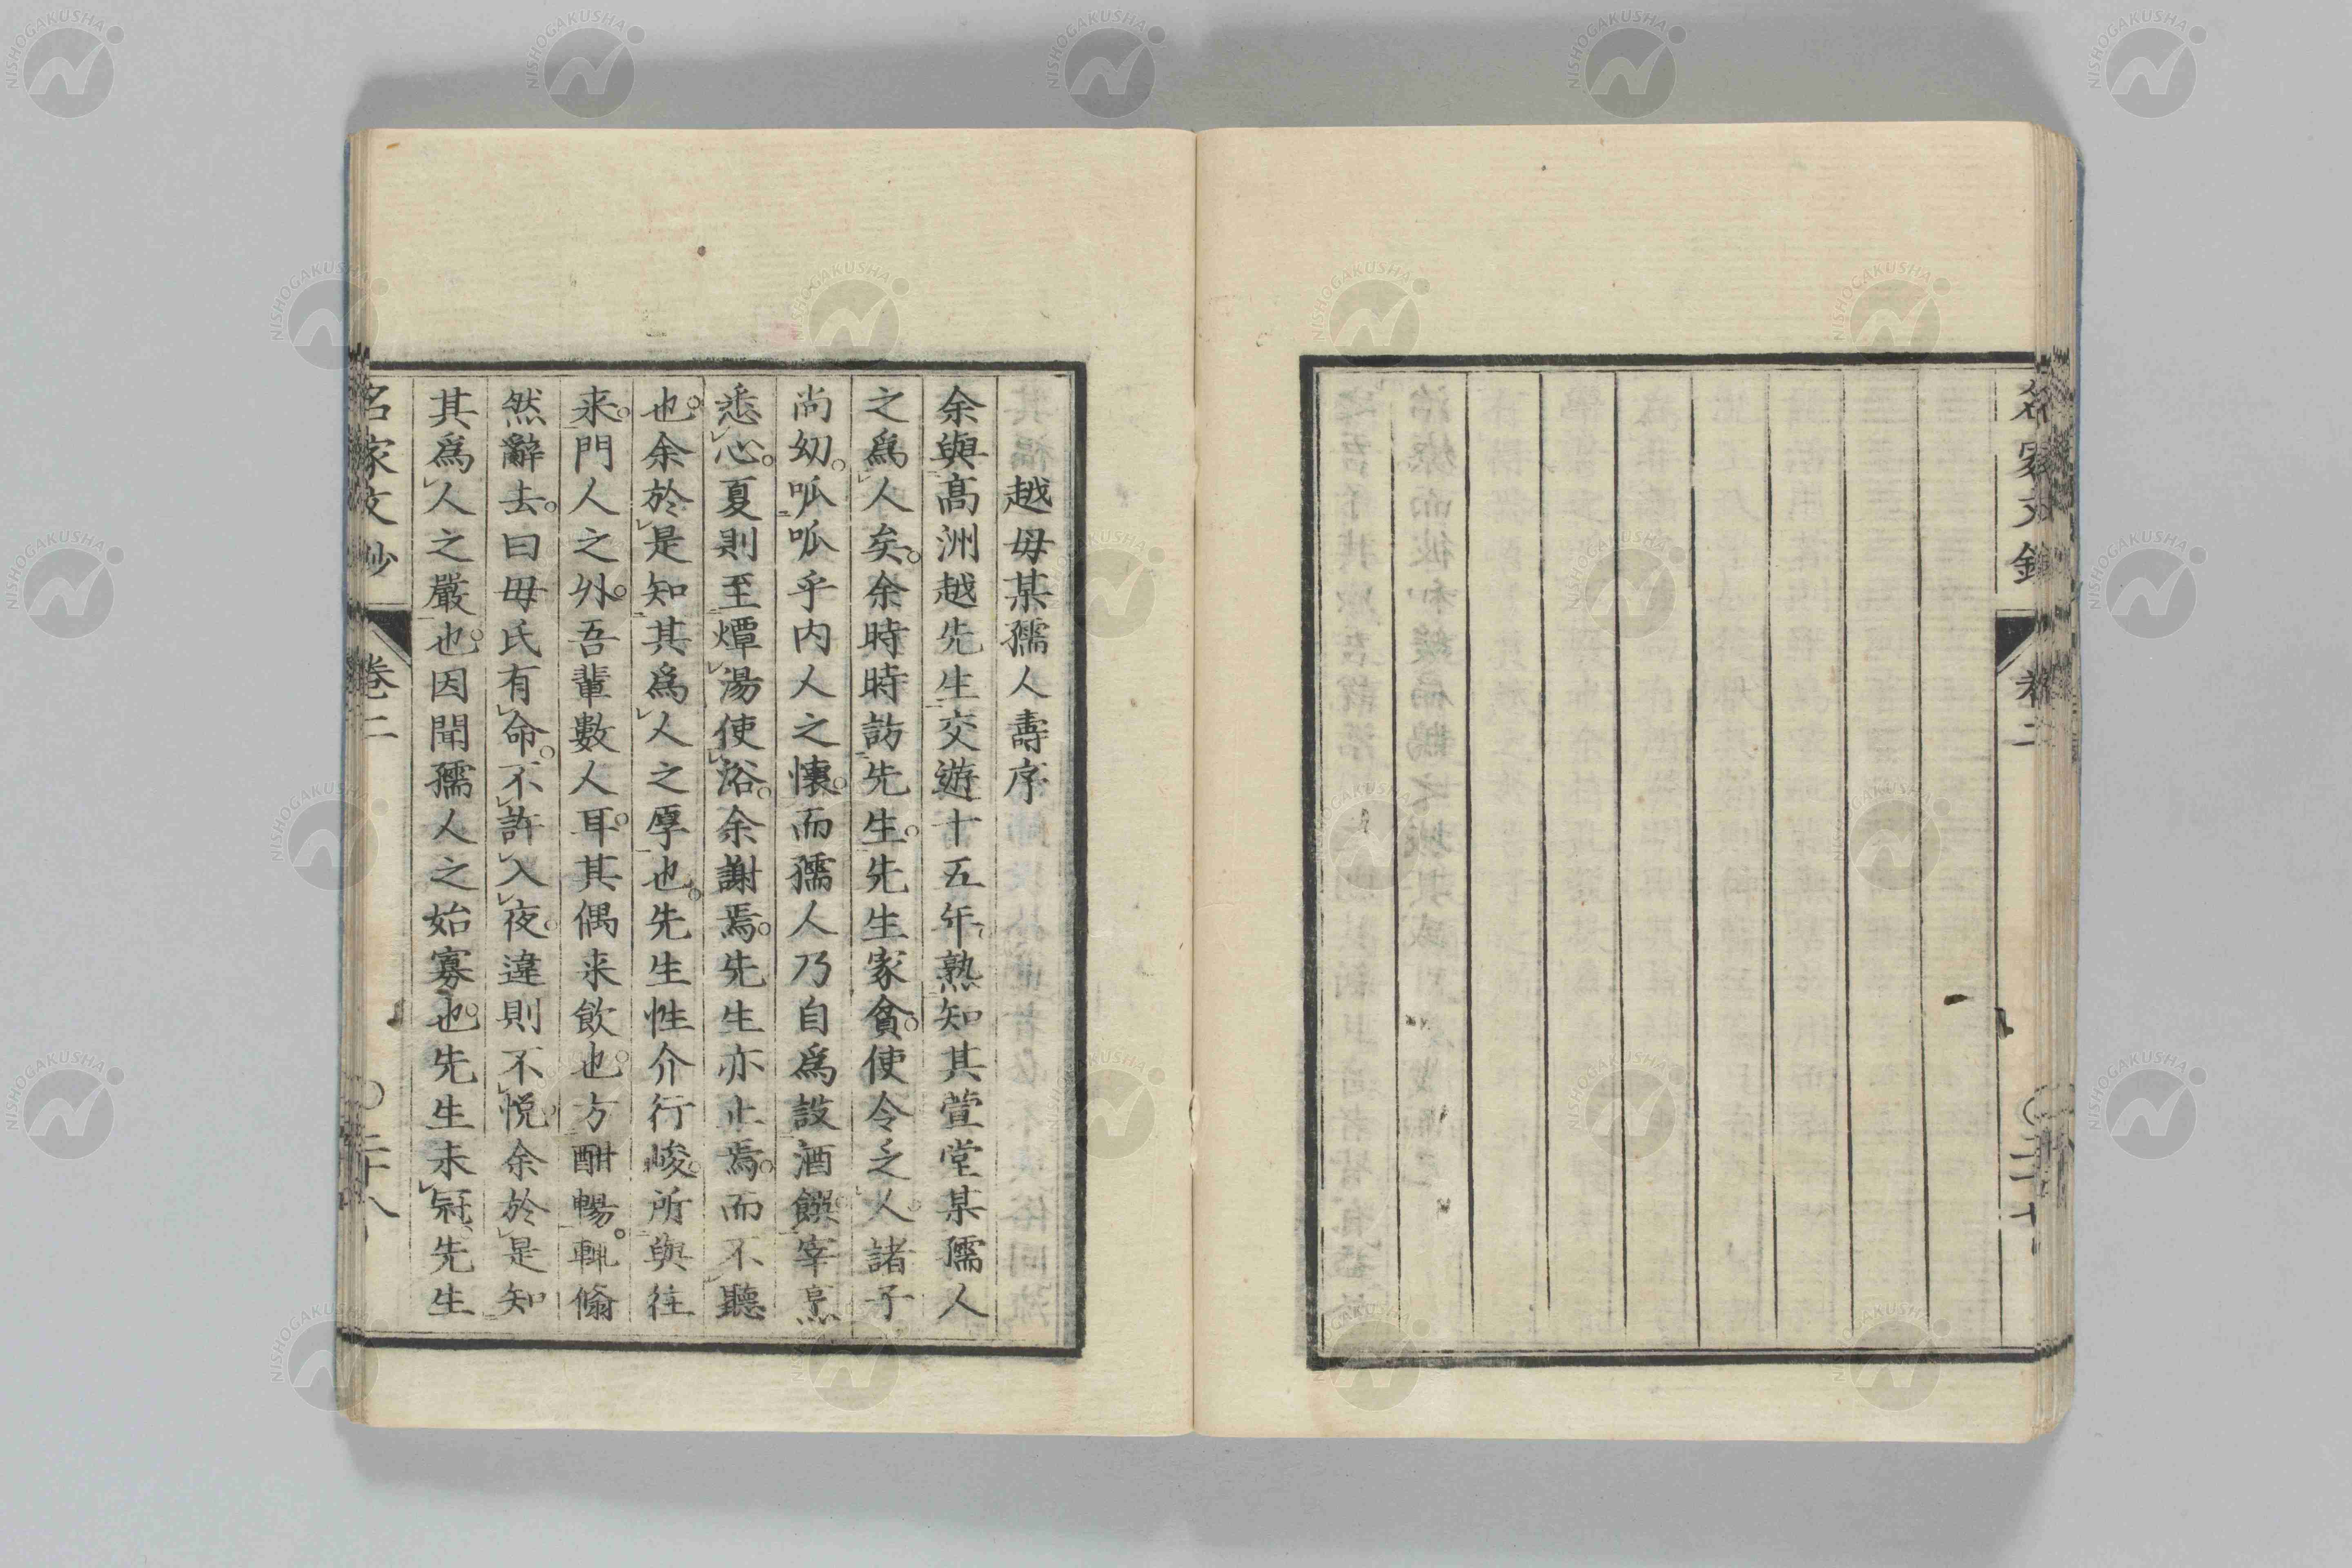 越母某孺人壽序
余與高洲越先生交遊十五年熟知其萱堂某孺人
之爲人矣余時時訪先生先生家貧使令乏人諸子
尚幼呱呱乎内人之懷而孺人乃自爲設酒饌宰烹
悉心夏則至燂湯使浴余謝焉先生亦止焉而不聽
也余於是知其爲人之厚也先生性介行峻所與往
来門人之外吾輩數人耳其偶来飲也方酣暢輒偸
然辭去曰母氏有命不許入夜違則不悦余於是知
其爲人之嚴也因聞孺人之始寡也先生未冠先生
名家文抄
卷二
二十八
NISHOGAKUSHA